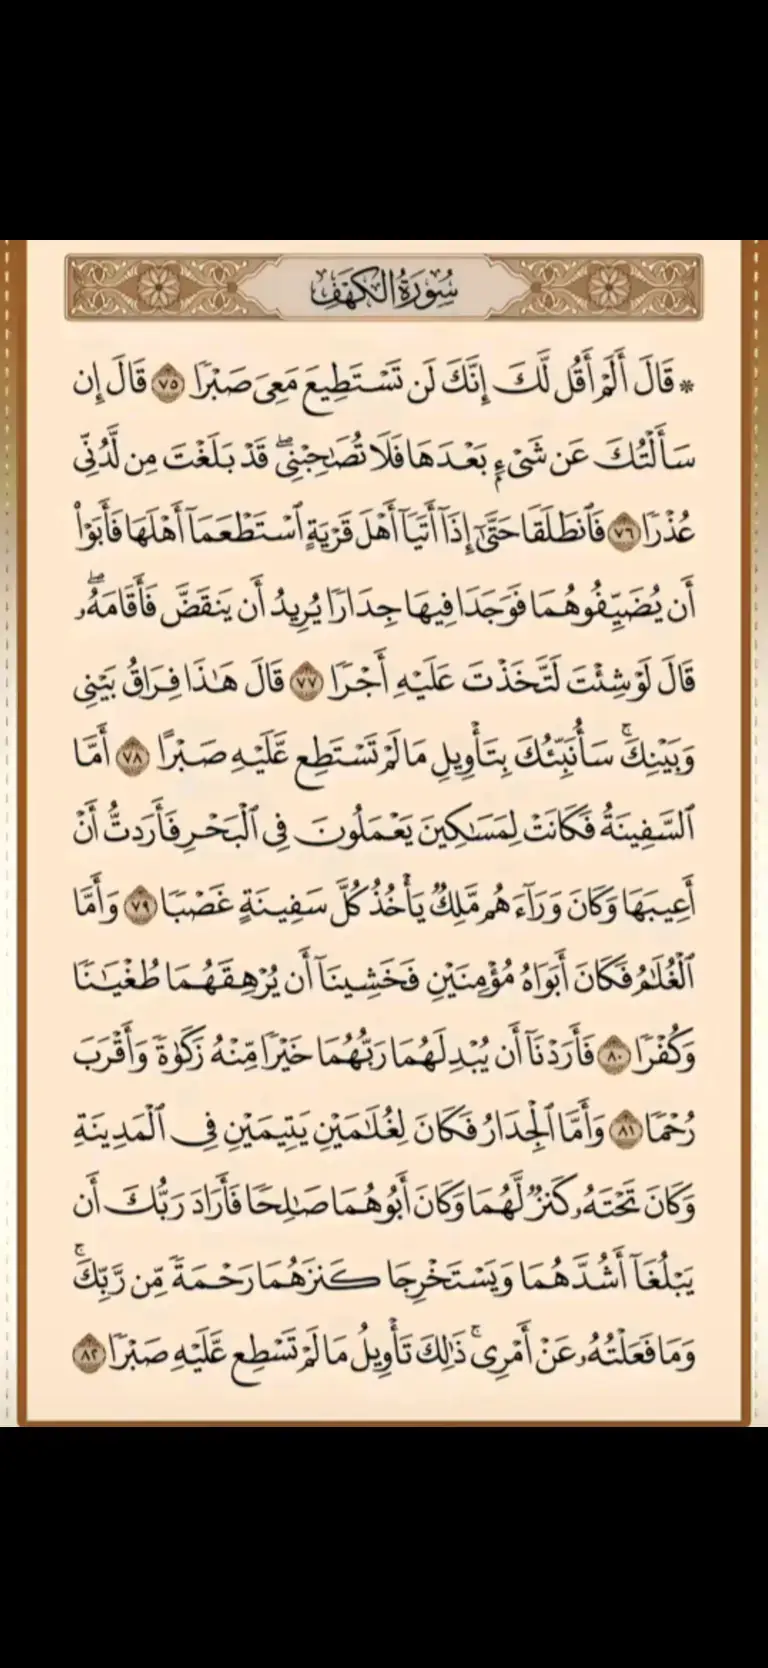 سُورَةُ الكَهْفِ
* قَالَ أَلَمْ أَقُل لَّكَ إِنَّكَ لَن تَسْتَطِيعَ مَعِىَ صَبْرًا ٧٥ قَالَ إِن
سَأَلْتُكَ عَن شَىْءٍۭ بَعْدَهَا فَلَا تُصَـٰحِبْنِىۖ قَدْ بَلَغْتَ مِن لَّدُنِّى
عُذْرًا ٧٦ فَٱنطَلَقَا حَتَّىٰٓ إِذَآ أَتَيَآ أَهْلَ قَرْيَةٍ ٱسْتَطْعَمَآ أَهْلَهَا فَأَبَوْا۟
أَن يُضَيِّفُوهُمَا فَوَجَدَا فِيهَا جِدَارًا يُرِيدُ أَن يَنقَضَّ فَأَقَامَهُۥۖ
قَالَ لَوْ شِئْتَ لَتَّخَذْتَ عَلَيْهِ أَجْرًا ٧٧ قَالَ هَـٰذَا فِرَاقُ بَيْنِى
وَبَيْنِكَۚ سَأُنَبِّئُكَ بِتَأْوِيلِ مَا لَمْ تَسْتَطِع عَّلَيْهِ صَبْرًا ٧٨ أَمَّا
ٱلسَّفِينَةُ فَكَانَتْ لِمَسَـٰكِينَ يَعْمَلُونَ فِى ٱلْبَحْرِ فَأَرَدتُّ أَنْ
أَعِيبَهَا وَكَانَ وَرَآءَهُم مَّلِكٌ يَأْخُذُ كُلَّ سَفِينَةٍ غَصْبًا ٧٩ وَأَمَّا
ٱلْغُلَـٰمُ فَكَانَ أَبَوَاهُ مُؤْمِنَيْنِ فَخَشِينَآ أَن يُرْهِقَهُمَا طُغْيَـٰنًا
وَكُفْرًا ٨٠ فَأَرَدْنَآ أَن يُبْدِلَهُمَا رَبُّهُمَا خَيْرًا مِّنْهُ زَكَوٰةً وَأَقْرَبَ
رُحْمًا ٨١ وَأَمَّا ٱلْجِدَارُ فَكَانَ لِغُلَـٰمَيْنِ يَتِيمَيْنِ فِى ٱلْمَدِينَةِ
وَكَانَ تَحْتَهُۥ كَنزٌ لَّهُمَا وَكَانَ أَبُوهُمَا صَـٰلِحًا فَأَرَادَ رَبُّكَ أَن
يَبْلُغَآ أَشُدَّهُمَا وَيَسْتَخْرِجَا كَنزَهُمَا رَحْمَةً مِّن رَّبِّكَۚ
وَمَا فَعَلْتُهُۥ عَنْ أَمْرِىۚ ذَٰلِكَ تَأْوِيلُ مَا لَمْ تَسْطِع عَّلَيْهِ صَبْرًا ٨٢